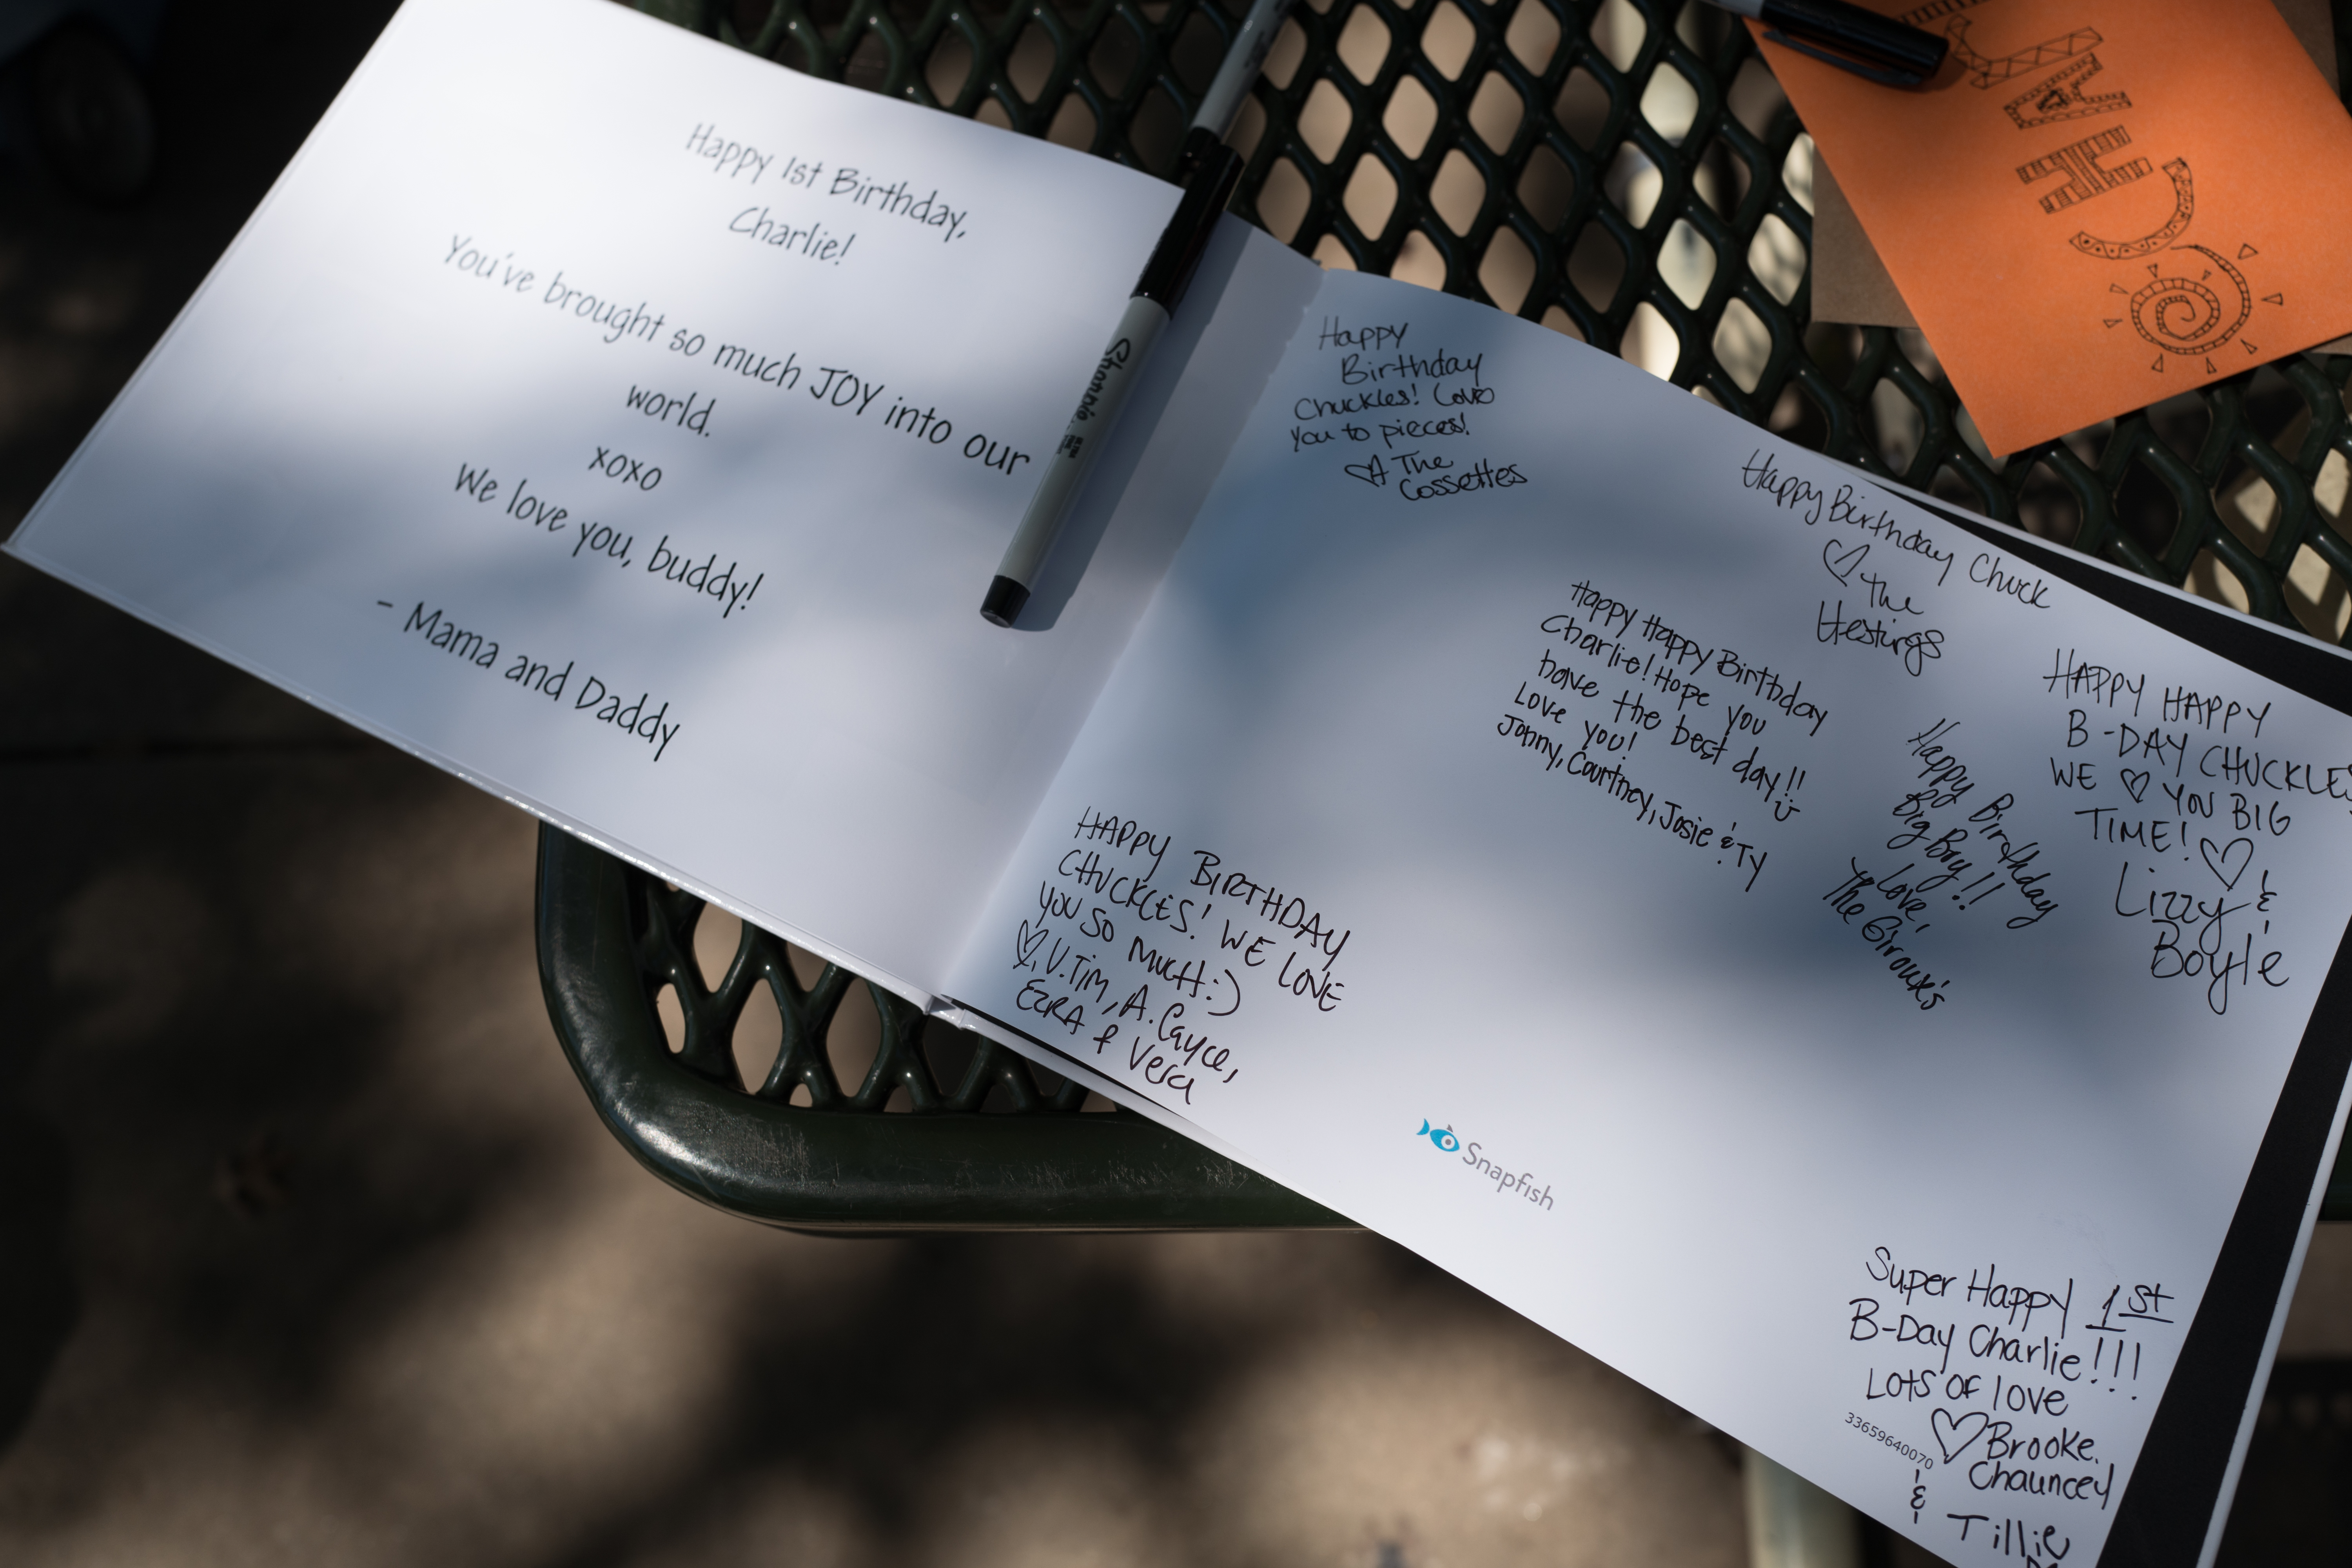 Happy 1st Birthday,
Charlie!
You've brought so much JOY into our
world.
xoxo
We love you, buddy!
- Mama and Daddy
Sharpie
Happy
Birthday
Chuckles! Love
you to pieces!
The
Cossettes
Happy Birthday Chuck
The
Hestings
Happy Happy Birthday
Charlie! Hope you
have the best day!!
Love you!
Jonny, Courtney, Josie & Ty
Happy Birthday
Big Boy!!
Love,
The Giroux's
HAPPY HAPPY
B-DAY CHUCKLES
WE ♡ YOU BIG
TIME! ♡
Lizzy &
Boyle
HAPPY BIRTHDAY
CHUCKLES! WE LOVE
YOU SO MUCH :)
♡, U. Tim, A. Cayce,
EZRA & Vera
Snapfish
Super Happy 1st
B-Day Charlie!!!
LOTS OF LOVE
♡ Brooke.
Chauncey
& Tillie
33659640070